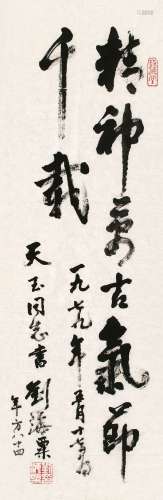 精神万古氣節
千載
一九七九年五月十七日
天玉同志書 劉海粟
年方八十四